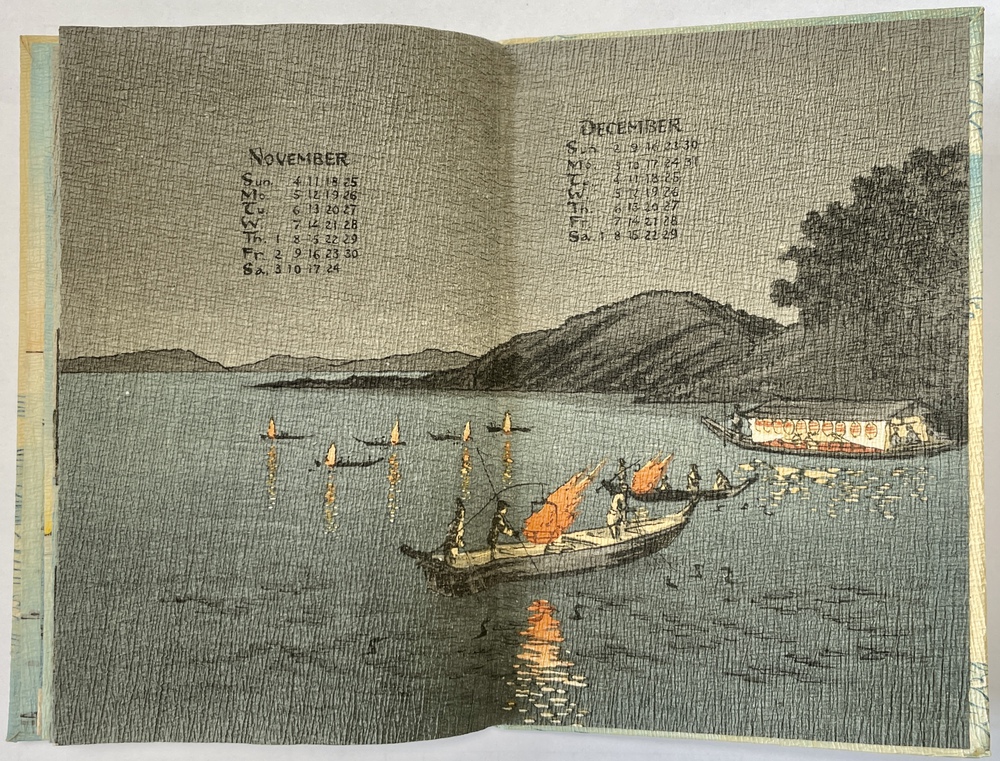 NOVEMBER
Sun. 4 11 18 25
Mo. 5 12 19 26
Tu. 6 13 20 27
W. 7 14 21 28
Th. 1 8 15 22 29
Fr. 2 9 16 23 30
Sa. 3 10 17 24
DECEMBER
Sun. 2 9 16 23 30
Mo. 3 10 17 24 31
Tu. 4 11 18 25
W. 5 12 19 26
Th. 6 13 20 27
Fr. 7 14 21 28
Sa. 1 8 15 22 29